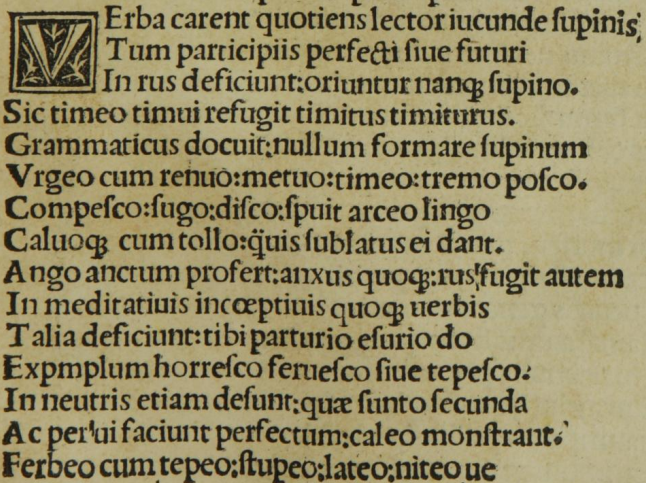 VErba carent quotiens lector iucunde ſupinis;
Tum participiis perfecti ſiue futuri
In rus deficiunt:oriuntur nanqꝫ ſupino.
Sic timeo timui refugit timitus timiturus.
Grammaticus docuit:nullum formare ſupinum
Vrgeo cum renuo:metuo:timeo:tremo poſco.
Compeſco:ſugo:diſco:ſpuit arceo lingo
Caluoqꝫ cum tollo:q̈uis ſublatus ei dant.
Ango anctum profert:anxus quoqꝫ:rus'fugit autem
In meditatiuis incœptiuis quoqꝫ uerbis
Talia deficiunt:tibi parturio eſurio do
Expmplum horreſco ferueſco ſiue tepeſco:
In neutris etiam deſunt:quæ ſunto ſecunda
Ac per'ui faciunt perfectum:caleo monſtrant.'
Ferbeo cum tepeo:ſtupeo:lateo:niteo ue